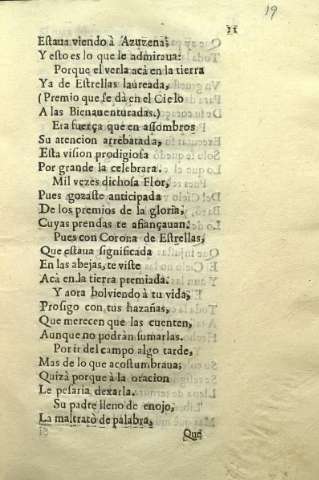 19
11
Estaua viendo à Azuzena;
Y esto es lo que le admiraua:
Porque el verla acà en la tierra
Ya de Estrellas laureada,
(Premio que se dà en el Cielo
A las Bienauenturadas.)
Era fuerça que en assombros
Su atencion arrebatada,
Esta vision prodigiosa
Por grande la celebrara.
Mil vezes dichosa Flor,
Pues gozaste anticipada
De los premios de la gloria,
Cuyas prendas te afiançauan.
Pues con Corona de Estrellas,
Que estaua significada
En las abejas, te viste
Acà en la tierra premiada.
Y aora bolviendo à tu vida,
Prosigo con tus hazañas,
Que merecen que las cuenten,
Aunque no podràn sumarlas.
Por ir del campo algo tarde,
Mas de lo que acostumbraua;
Quizà porque à la oracion
Le pesaria dexarla.
Su padre lleno de enojo,
La maltratò de palabra,
Que